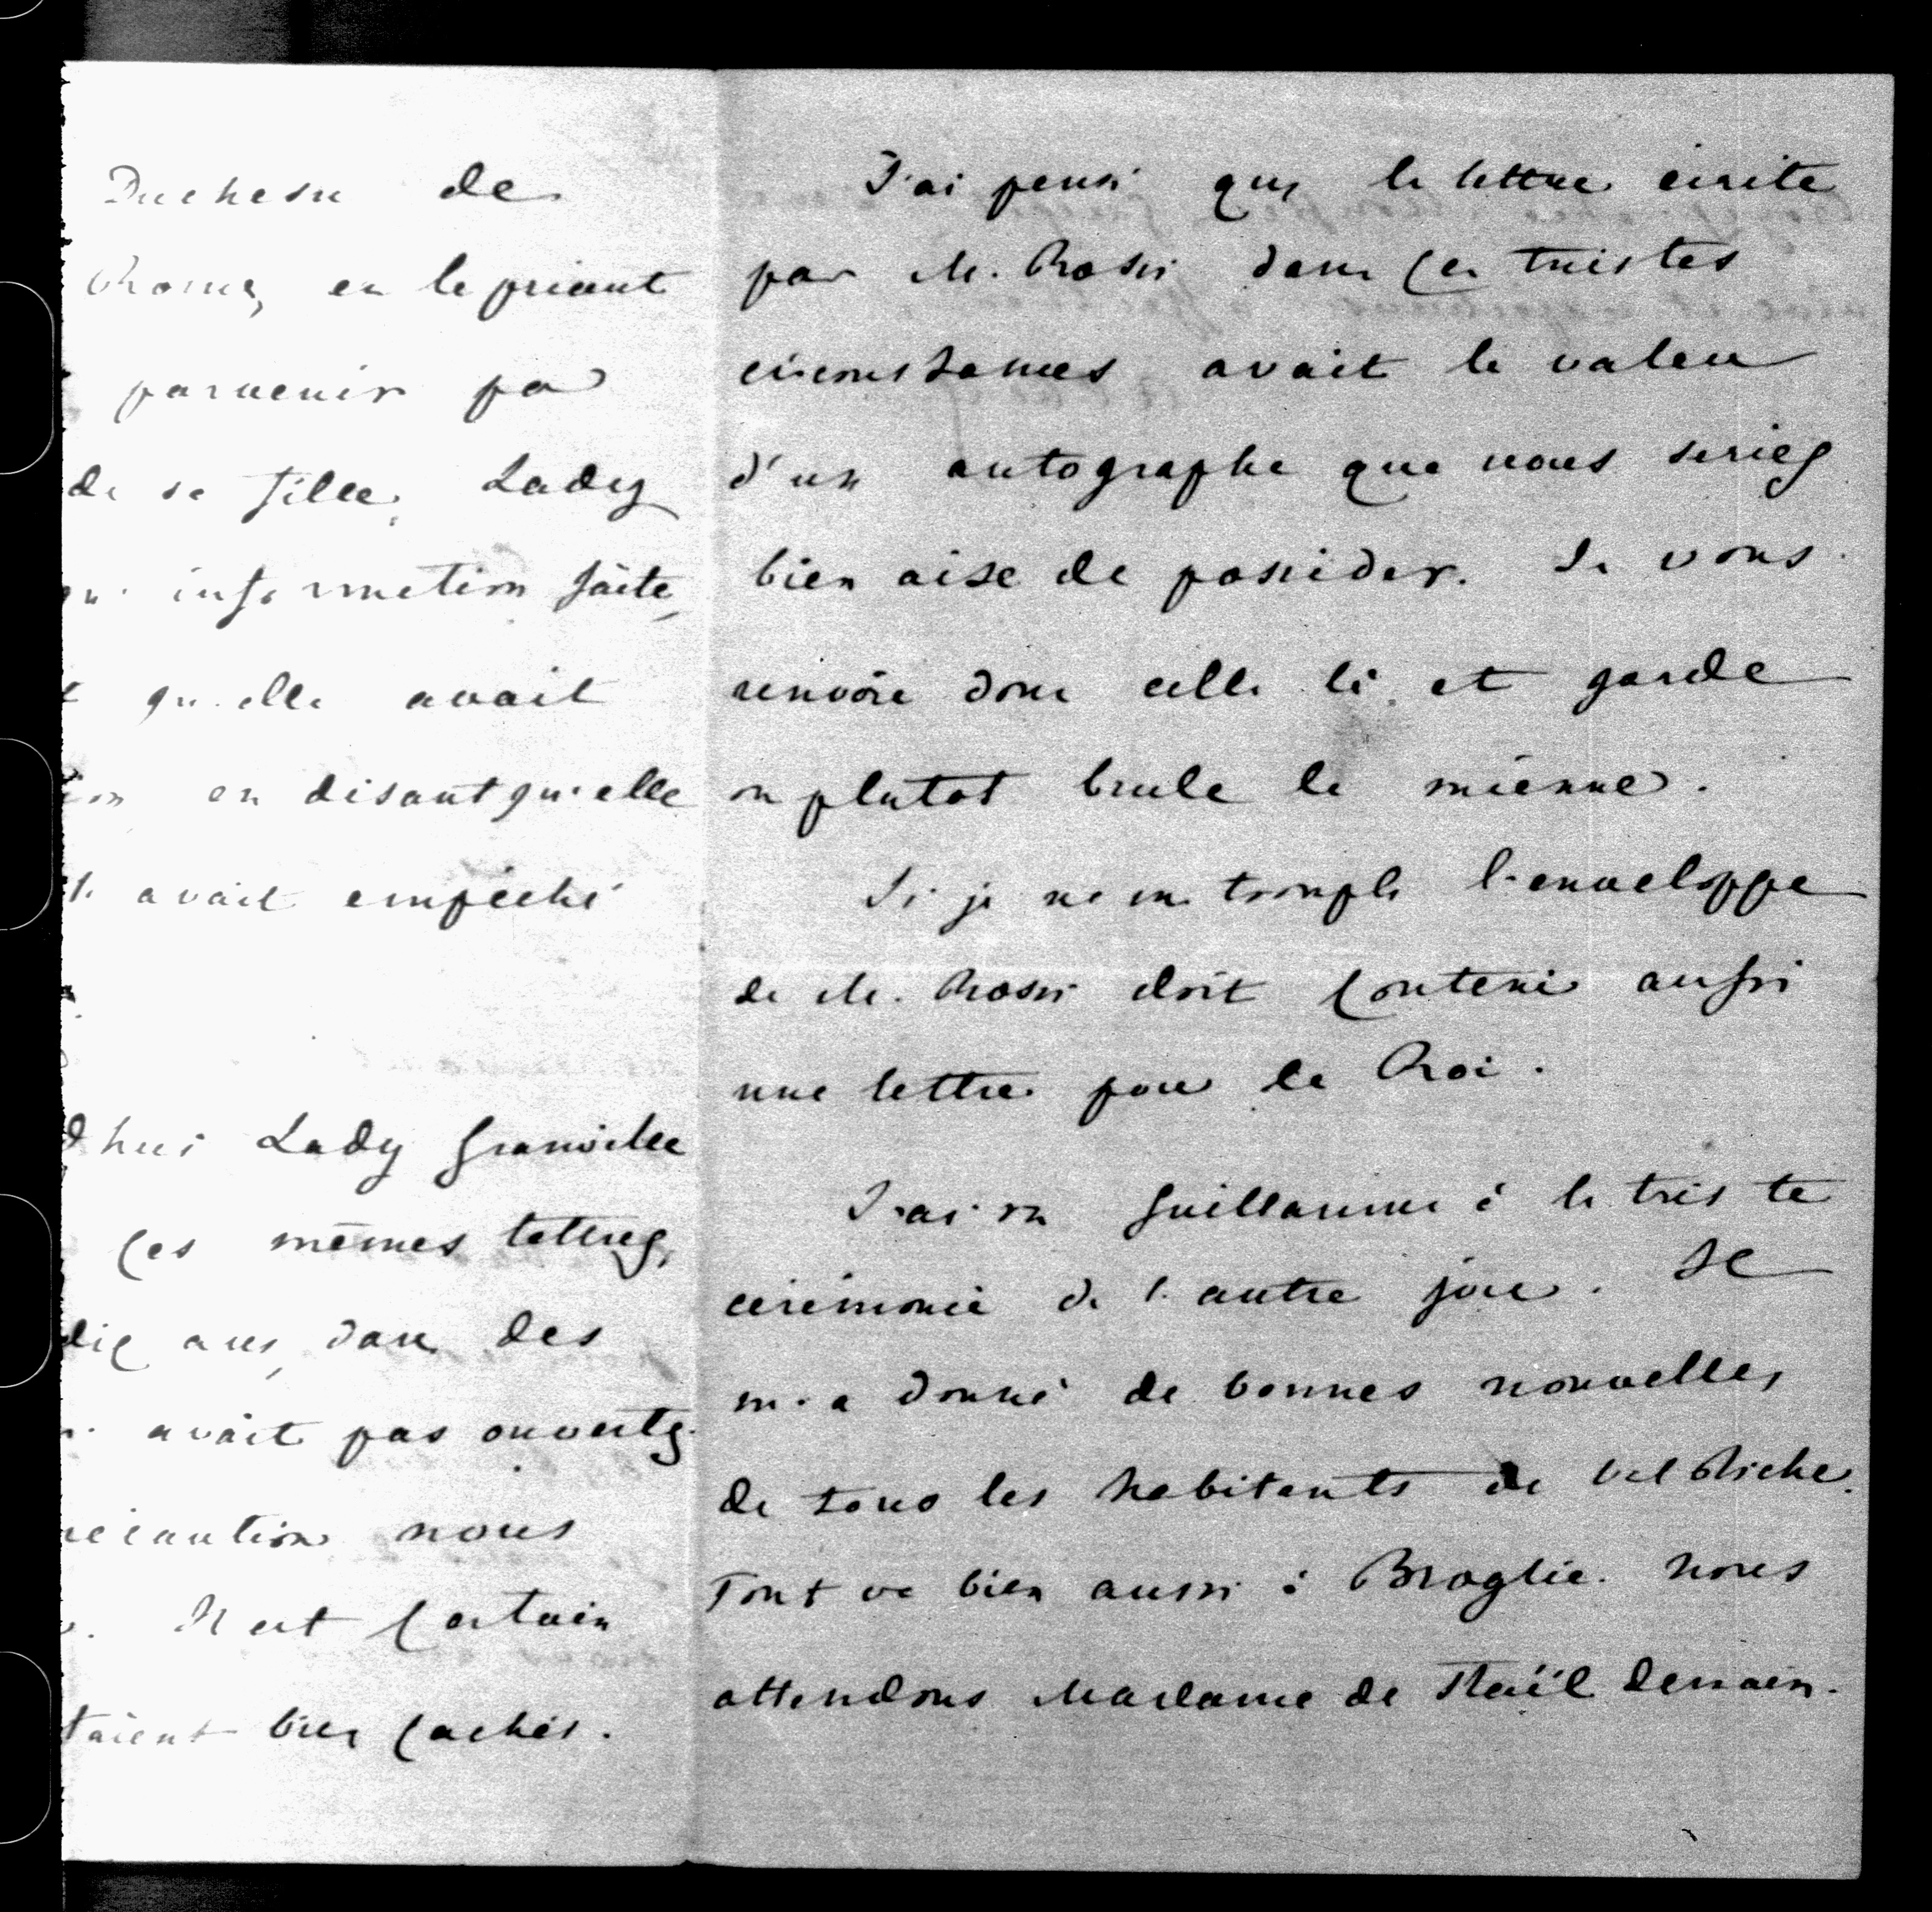 Duchesse de
Rome, en le priant
parvenir par
de sa fille, Lady
information faite,
qu'elle avait
en disant qu'elle
avait empêché
d'hui Lady Granville
ces mêmes lettres,
dix ans, dans des
avait pas ouvertes.
nous
Il est certain
taient bien cachés.
J'ai pensé que la lettre écrite
par M. Rossi dans ces tristes
circonstances avait la valeur
d'un autographe que vous seriez
bien aise de posséder. Je vous
renvoie donc celle là et garde
ou plutot brule la mienne.
Si je ne me trompe l'enveloppe
de M. Rossi doit contenir aussi
une lettre pour le Roi.
J'ai vu Guillaume à la triste
cérémonie de l'autre jour. Il
m'a donné de bonnes nouvelles
de tous les habitants de Val Richer.
Tout va bien aussi à Broglie. Nous
attendons Madame de Staël demain.